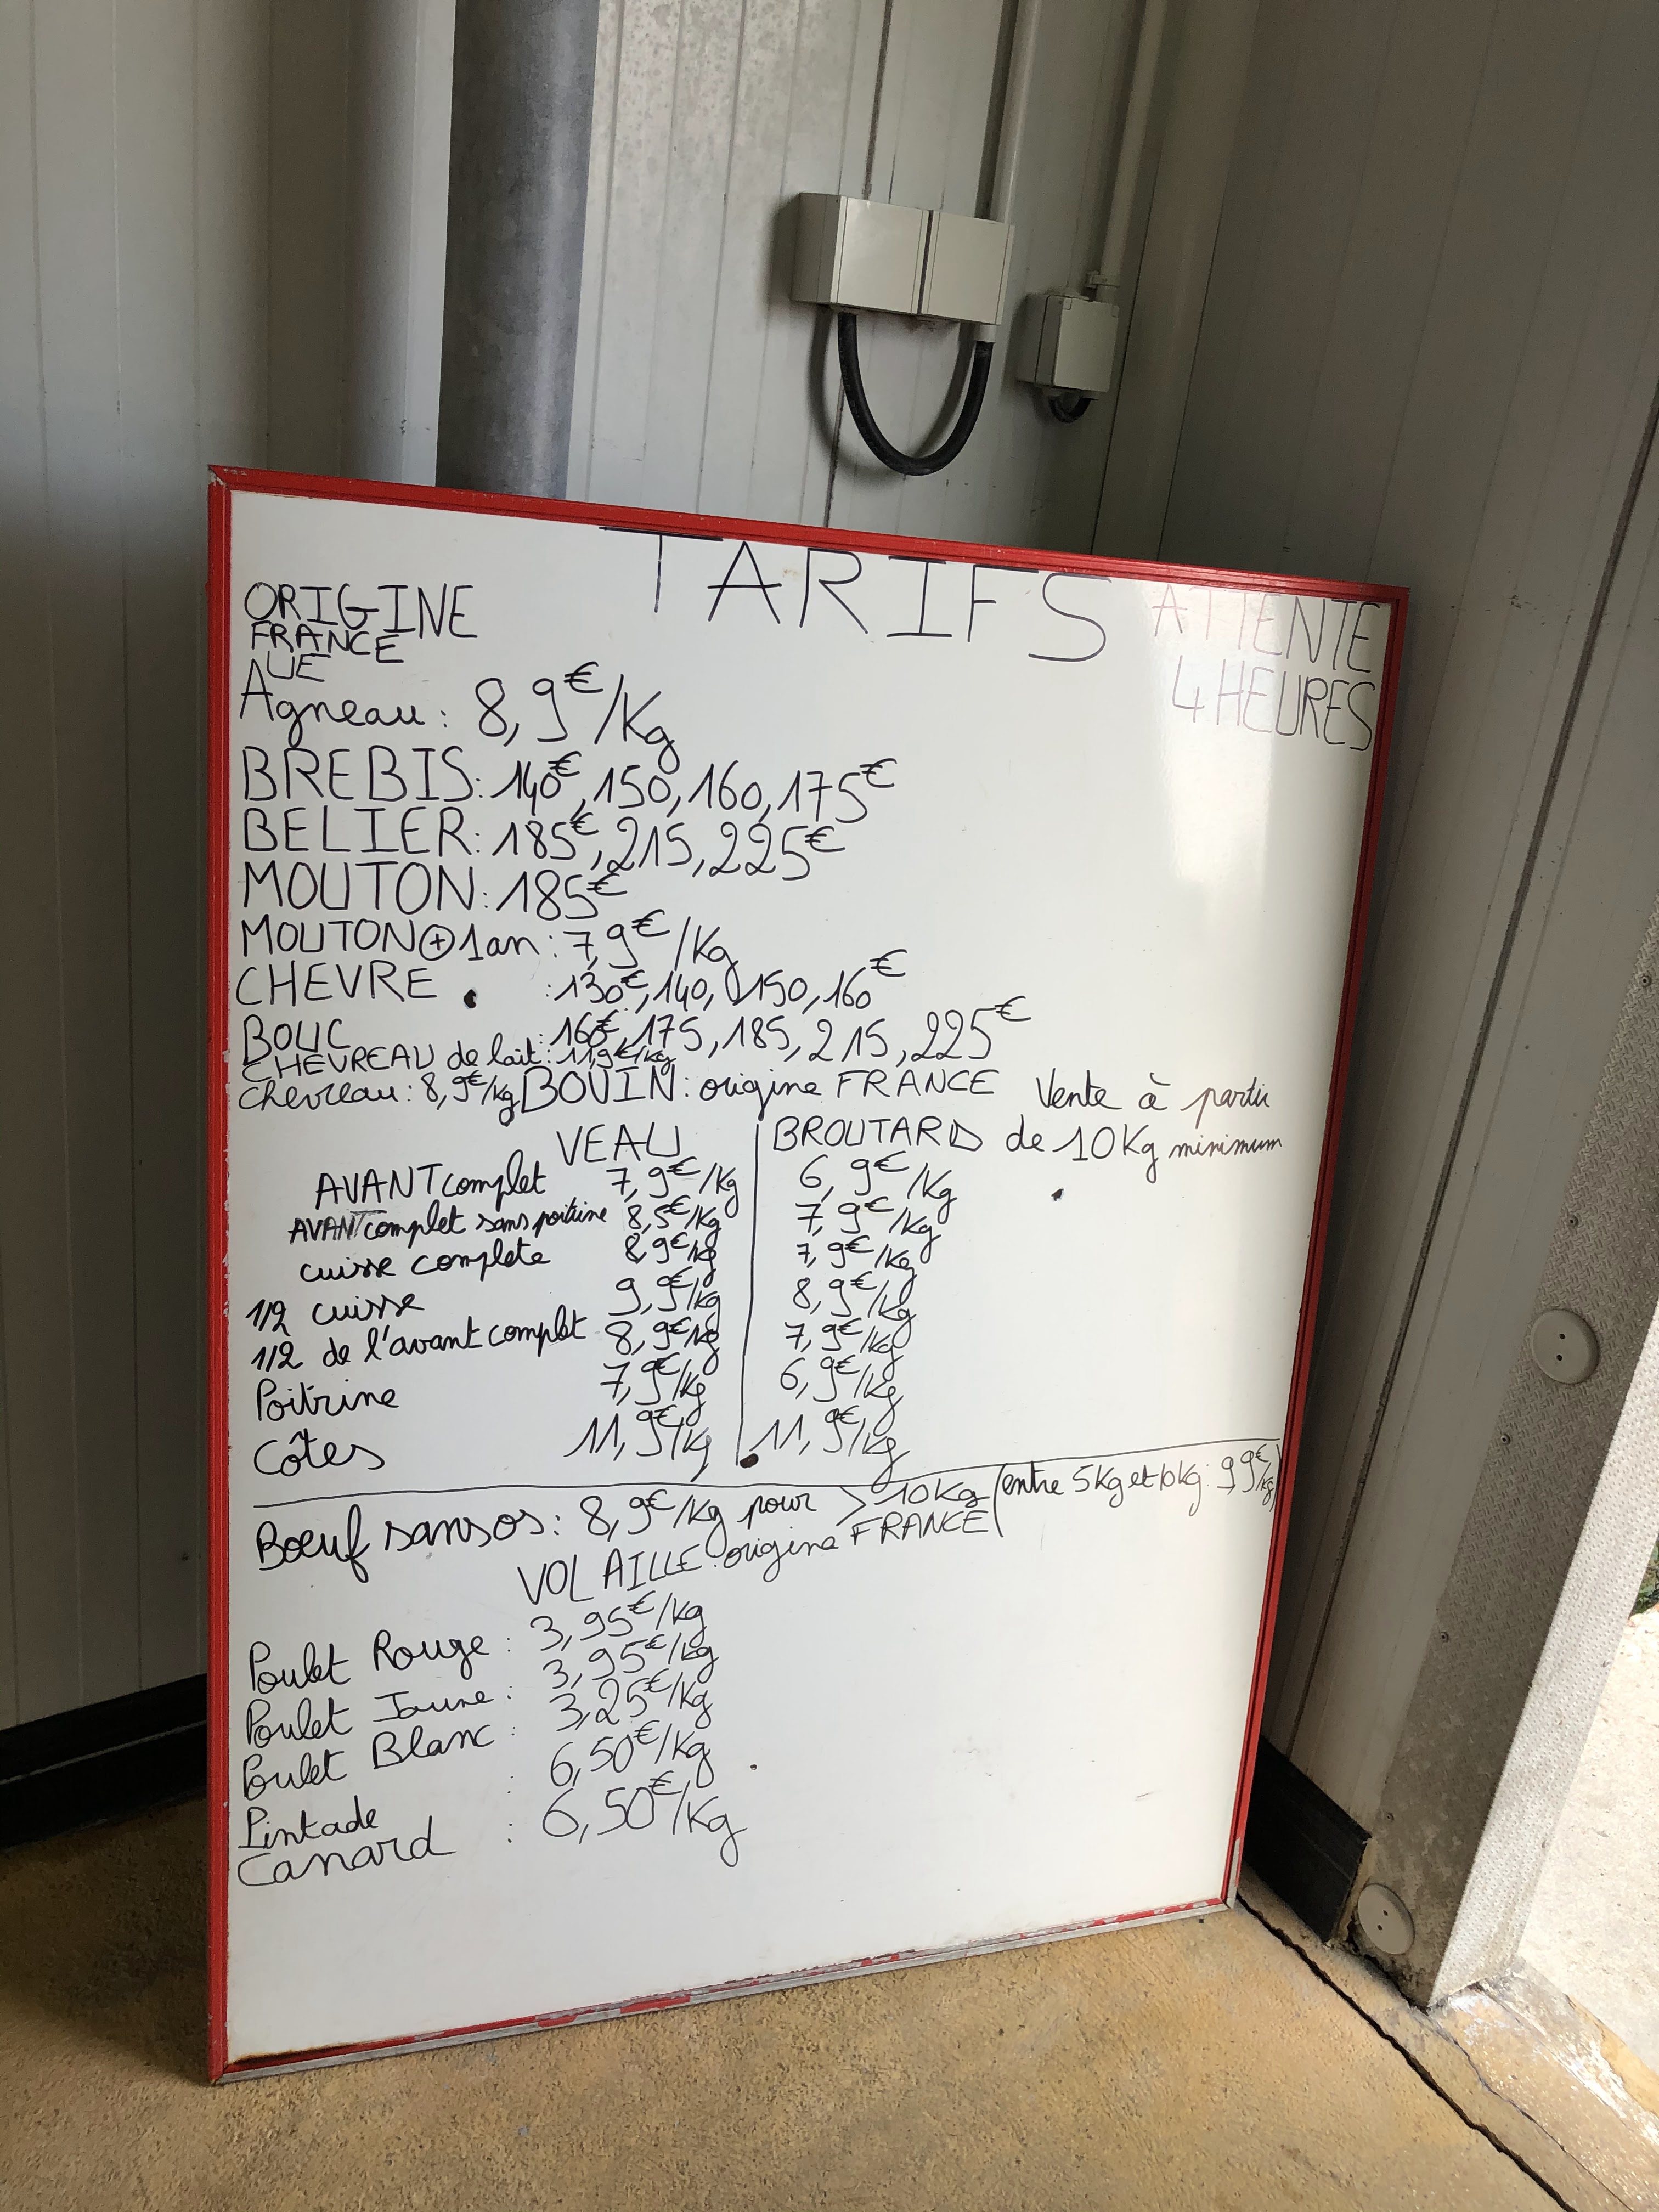 TARIFS
ORIGINE
FRANCE
UE
ATTENTE
4 HEURES
Agneau : 8,9€/Kg
BREBIS : 140€, 150, 160, 175€
BELIER : 185€, 215, 225€
MOUTON : 185€
MOUTON ⊕ 1an : 7,9€/Kg
CHEVRE : 130€, 140, 150, 160€
BOUC : 160€, 175, 185, 215, 225€
CHEVREAU de lait : 11,9€/kg
Chevreau : 8,9€/kg BOVIN : origine FRANCE Vente à partir
VEAU BROUTARD de 10Kg minimum
AVANT complet 7,9€/Kg 6,9€/Kg
AVANT complet sans poitrine 8,5€/Kg 7,9€/Kg
cuisse complete 8,9€/Kg 7,9€/Kg
1/2 cuisse 9,9€/kg 8,9€/Kg
1/2 de l'avant complet 8,9€/Kg 7,9€/Kg
Poitrine 7,9€/Kg 6,9€/Kg
Côtes 11,9€/kg 11,9€/kg
Bœuf sans os : 8,9€/Kg pour > 10Kg (entre 5Kg et 10kg : 9,9€/kg)
VOLAILLE : origine FRANCE
Poulet Rouge : 3,95€/Kg
Poulet Jaune : 3,95€/kg
Poulet Blanc : 3,25€/Kg
Pintade : 6,50€/Kg
Canard : 6,50€/Kg